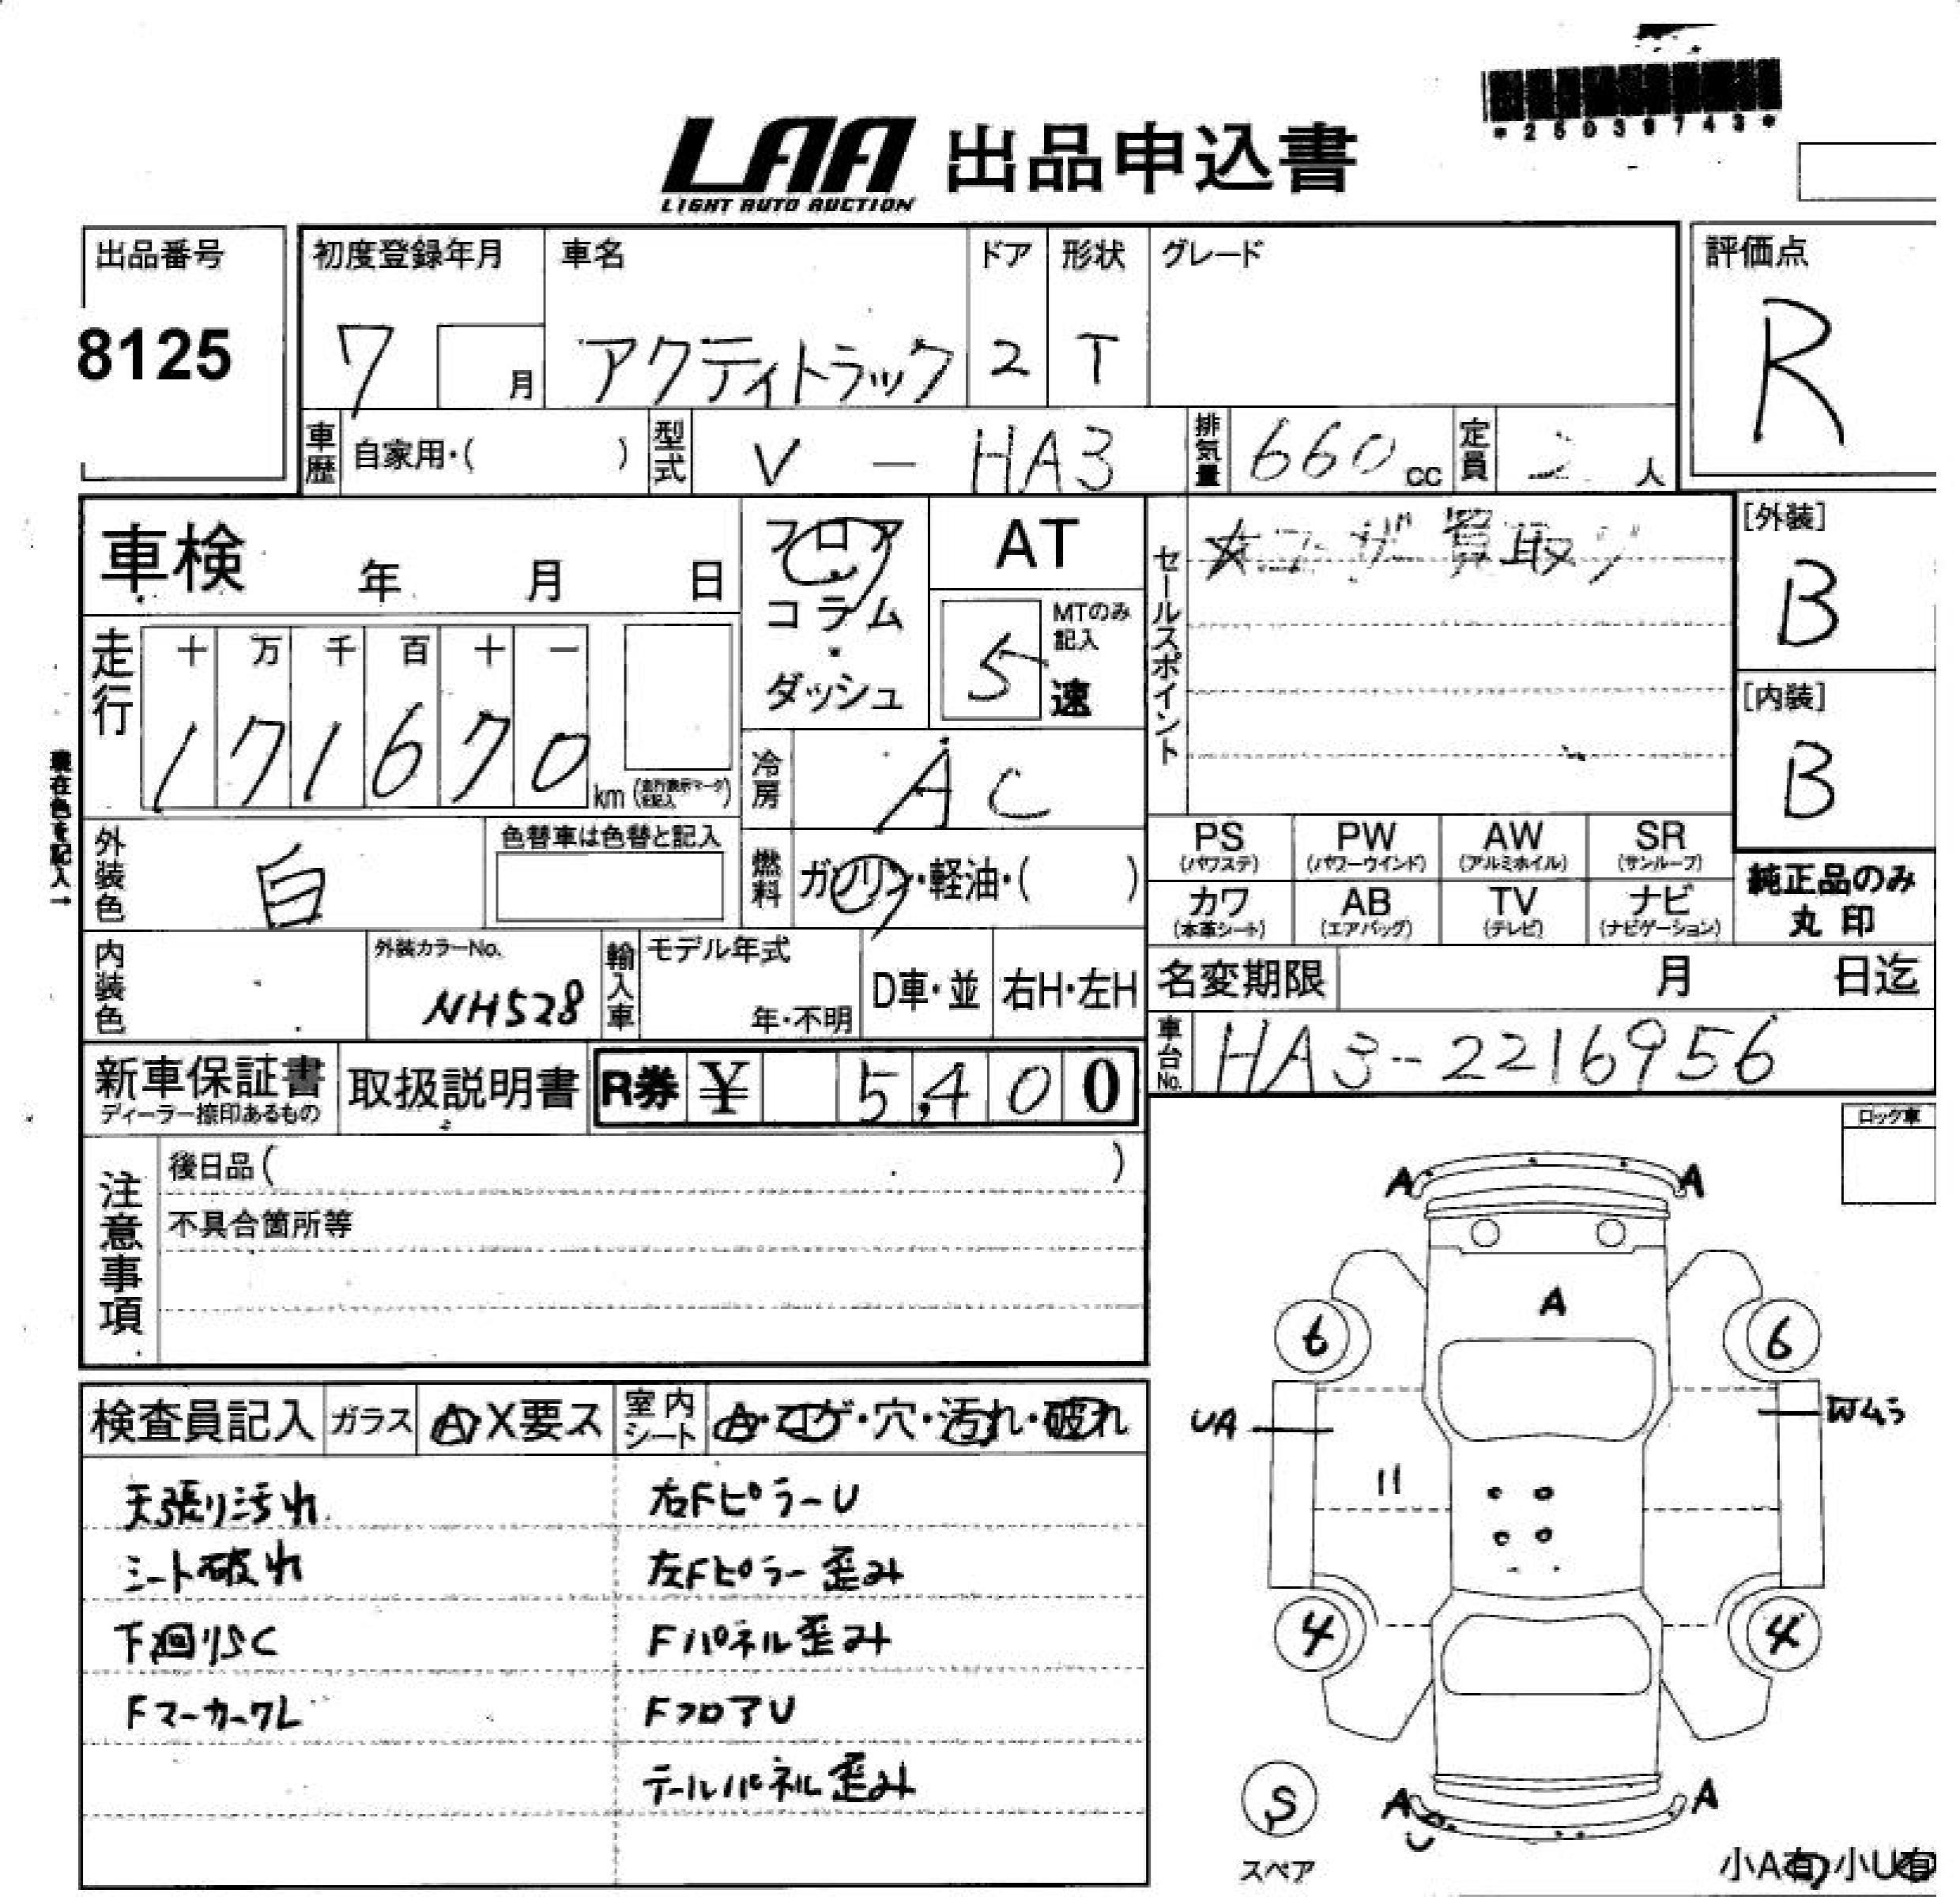 *25039743*
LAA 出品申込書
LIGHT AUTO AUCTION
出品番号 初度登録年月 車名 ドア 形状 グレード 評価点
8125 7 月 アクティトラック 2 T R
車歴 自家用・( ) 型式 V - HA3 排気量 660 cc 定員 2 人
車検 年 月 日
フロア・コラム・ダッシュ
AT
5 MTのみ記入 速
セールスポイント ☆ユーザー買取り
[外装] B
[内装] B
走行 十 万 千 百 十 一
1 7 1 6 7 0 km (走行表示マーク を記入)
冷房 AC
現在色を記入→
外装色 白 色替車は色替と記入
燃料 ガソリン・軽油・( )
PS (パワステ) PW (パワーウインド) AW (アルミホイル) SR (サンルーフ)
カワ (本革シート) AB (エアバッグ) TV (テレビ) ナビ (ナビゲーション)
純正品のみ
丸印
内装色 外装カラーNo. NH528 輸入車 モデル年式 年・不明 D車・並 右H・左H
名変期限 月 日迄
車台No. HA3-2216956
新車保証書 ディーラー捺印あるもの 取扱説明書 R券 ¥ 5,400
ロック車
注意事項 後日品( )
不具合箇所等
検査員記入 ガラス A・X要ス 室内シート A・コゲ・穴・汚れ・破れ
天張り汚れ 右FピラーU
シート破れ 左Fピラー歪み
下回りSC Fパネル歪み
FマーカークL FフロアU
テールパネル歪み
A A
A
6 6
UA
4 4
S
スペア
A A
U
小A有・小U有